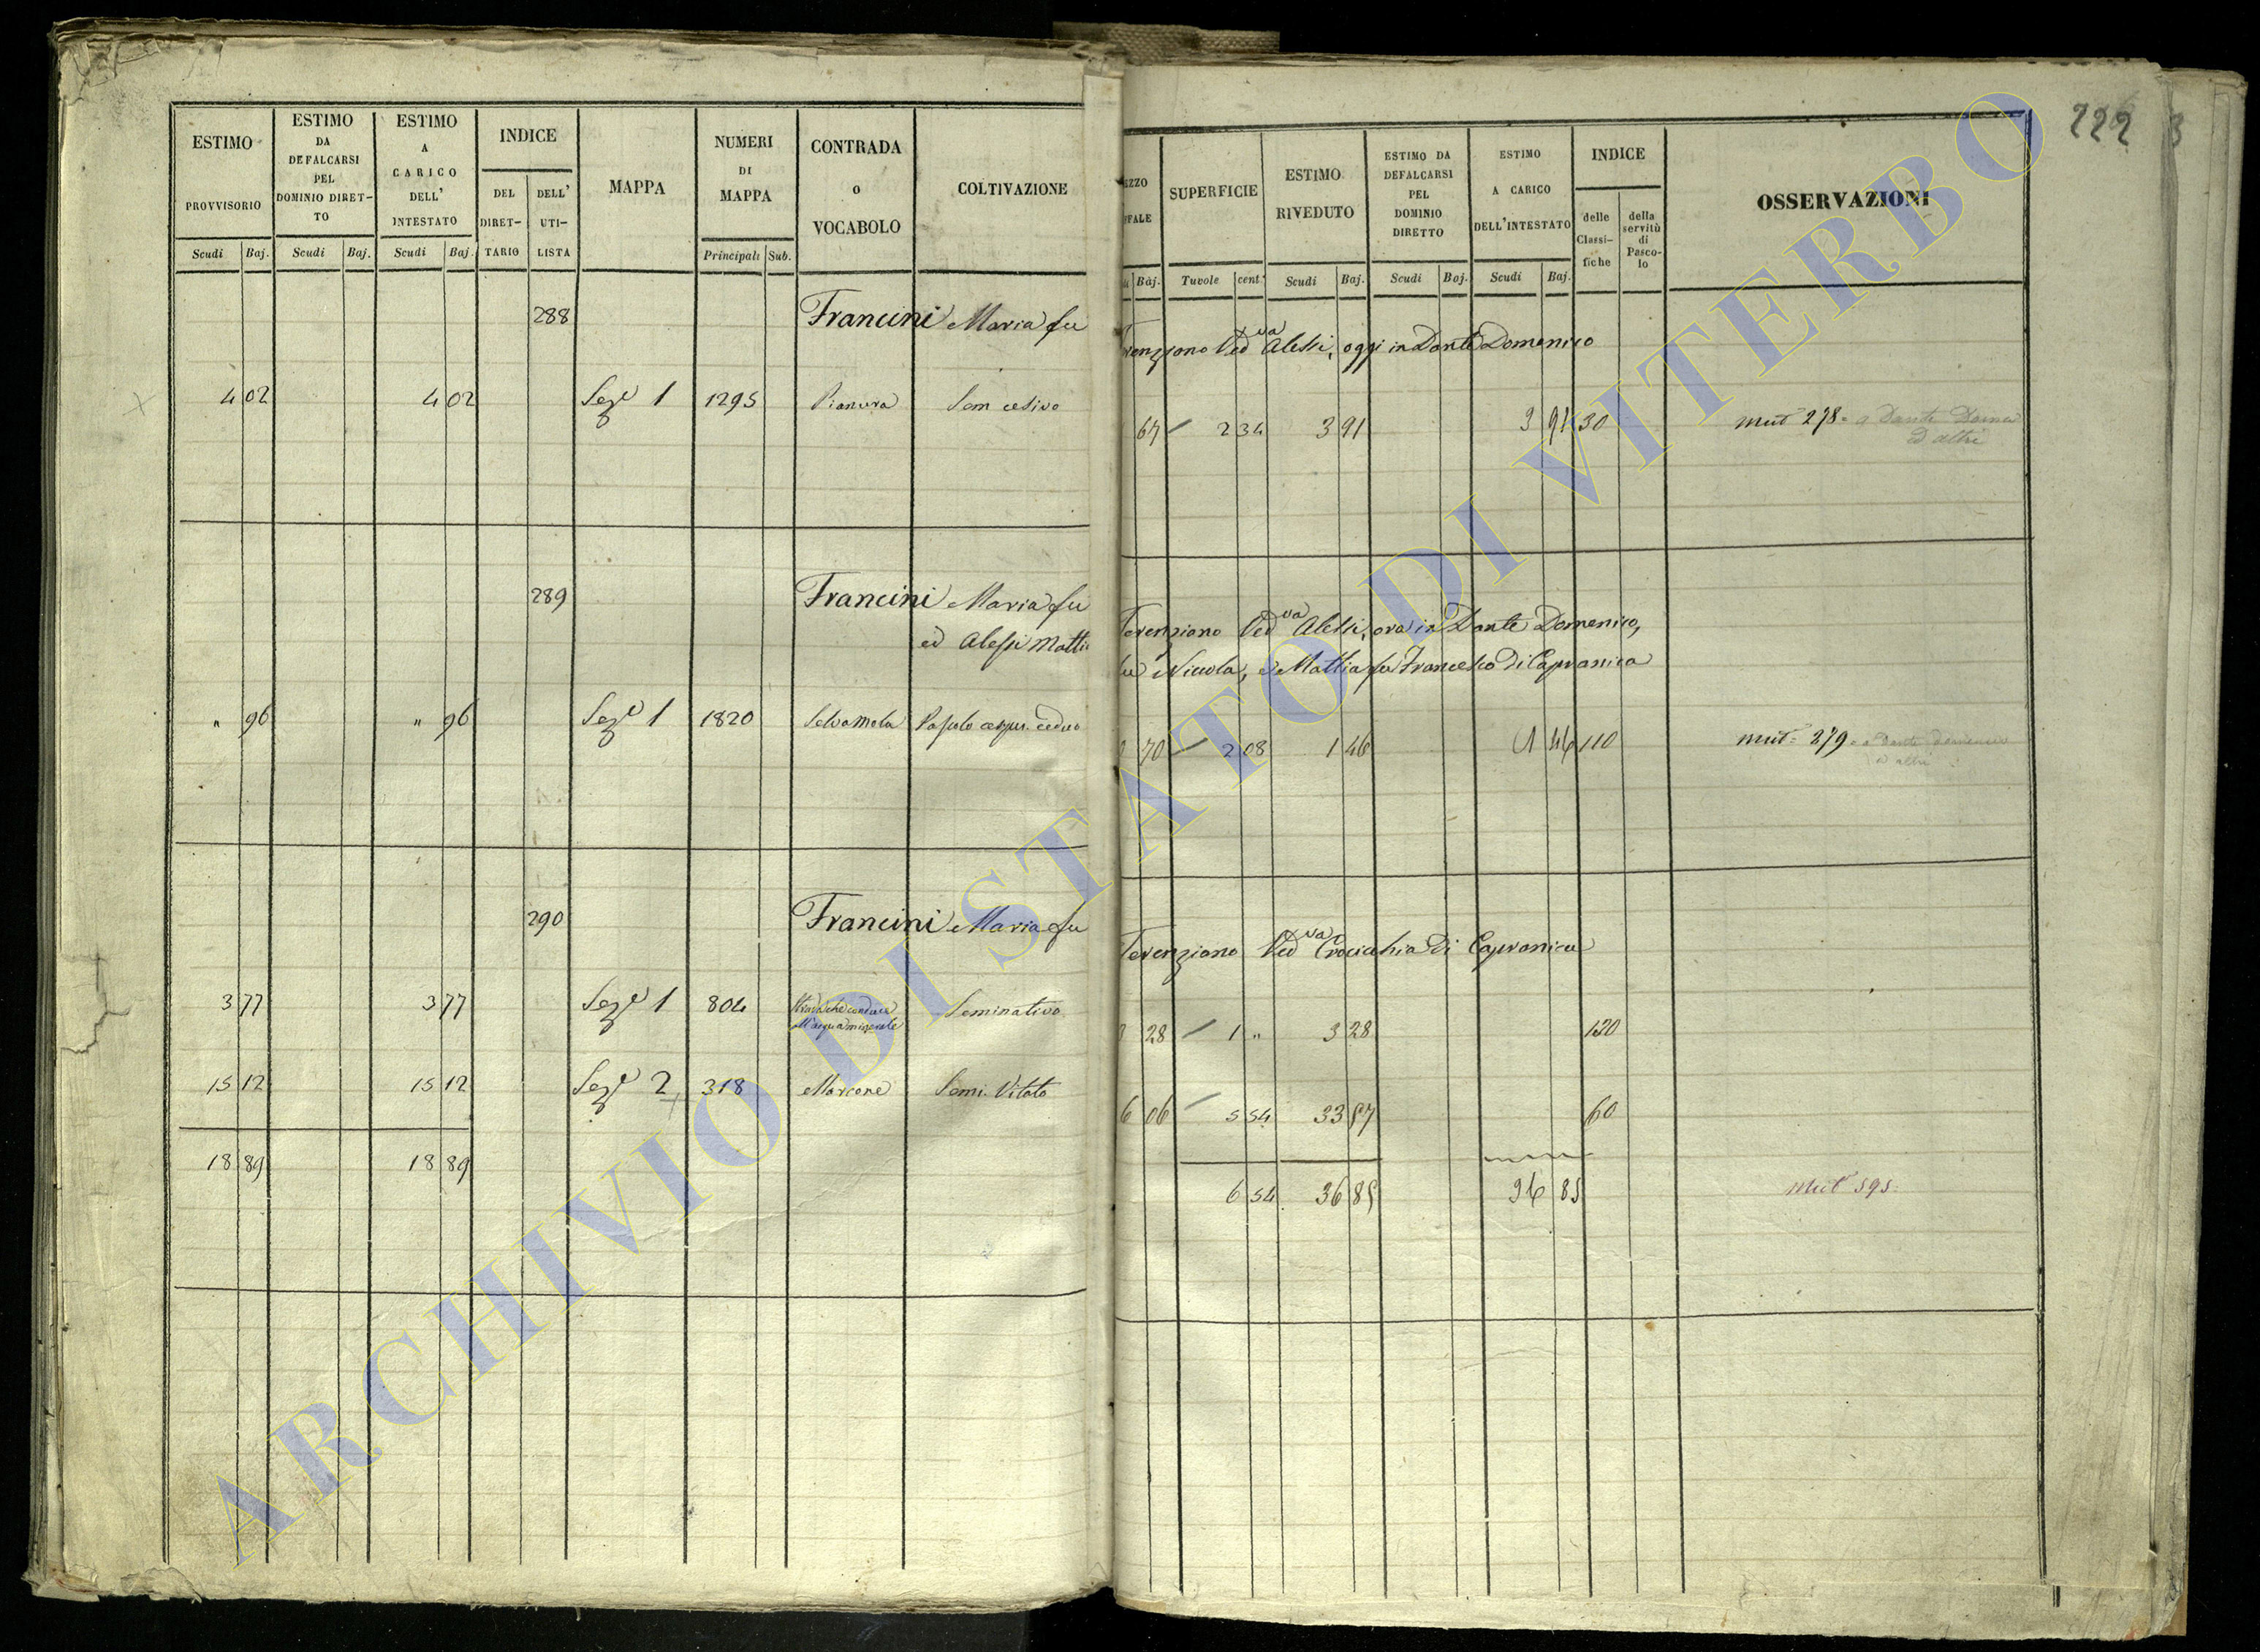 222 3
ESTIMO PROVVISORIO
ESTIMO DA DEFALCARSI PEL DOMINIO DIRET-TO
ESTIMO A CARICO DELL' INTESTATO
INDICE
DEL DIRET-TARIO
DELL' UTI-LISTA
MAPPA
NUMERI DI MAPPA
CONTRADA O VOCABOLO
COLTIVAZIONE
Scudi Baj. Scudi Baj. Scudi Baj. Principali Sub.
EZZO FFALE
SUPERFICIE
ESTIMO RIVEDUTO
ESTIMO DA DEFALCARSI PEL DOMINIO DIRETTO
ESTIMO A CARICO DELL'INTESTATO
INDICE
delle Classi-fiche
della servitù di Pasco-lo
OSSERVAZIONI
Baj. Tavole cent. Scudi Baj. Scudi Baj. Scudi Baj.
288 Francini Maria fu
renziano Ved va Alessi, oggi in Dante Domenico
4 02 4 02 Sez e 1 1295 Pianura Sem estivo
67 2 34 3 91 3 91 30 mut 278 = a Dante Domco
ed altri
289 Francini Maria fu
Terenziano Ved va Alessi, ora in Dante Domenico,
ed Alessi Matti
fu Nicola, e Mattia fu Francesco di Capranica
" 96 " 96 Sez e 1 1820 Selvamela Pascolo cespu. ceduo
70 2 08 1 46 1 46 110 mut = 279 = a Dante Domenico
ed altri
290 Francini Maria fu
Terenziano Ved va Crocicchia di Capranica
3 77 3 77 Sez e 1 804 Strada che conduce Seminativo
all'acqua minerale
28 1 " 3 28 120
15 12 15 12 Sez e 2 318 Marcone Semi. Vitato
6 06 5 54 33 57 60
18 89 18 89
6 54 36 85 36 85 Mut 595.
ARCHIVIO DI STATO DI VITERBO